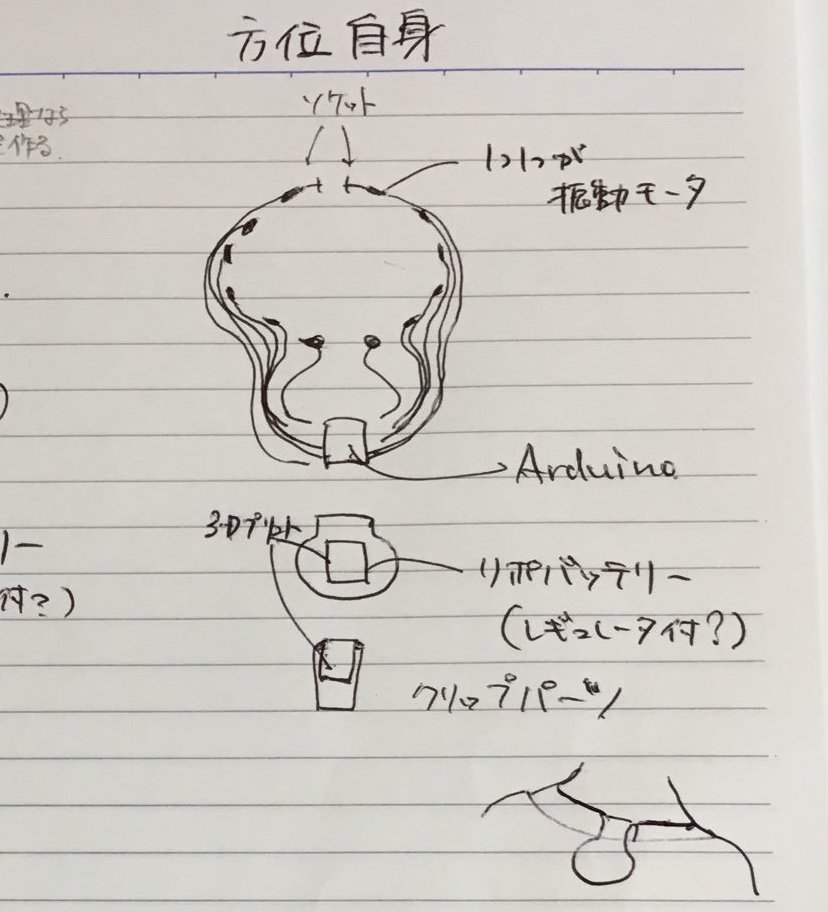 方位自身
ソケット
なら
作る.
1つ1つが
振動モータ
Arduino
3Dプリント
リー
リポバッテリー
付?)
(レギュレータ付?)
クリップパーツ